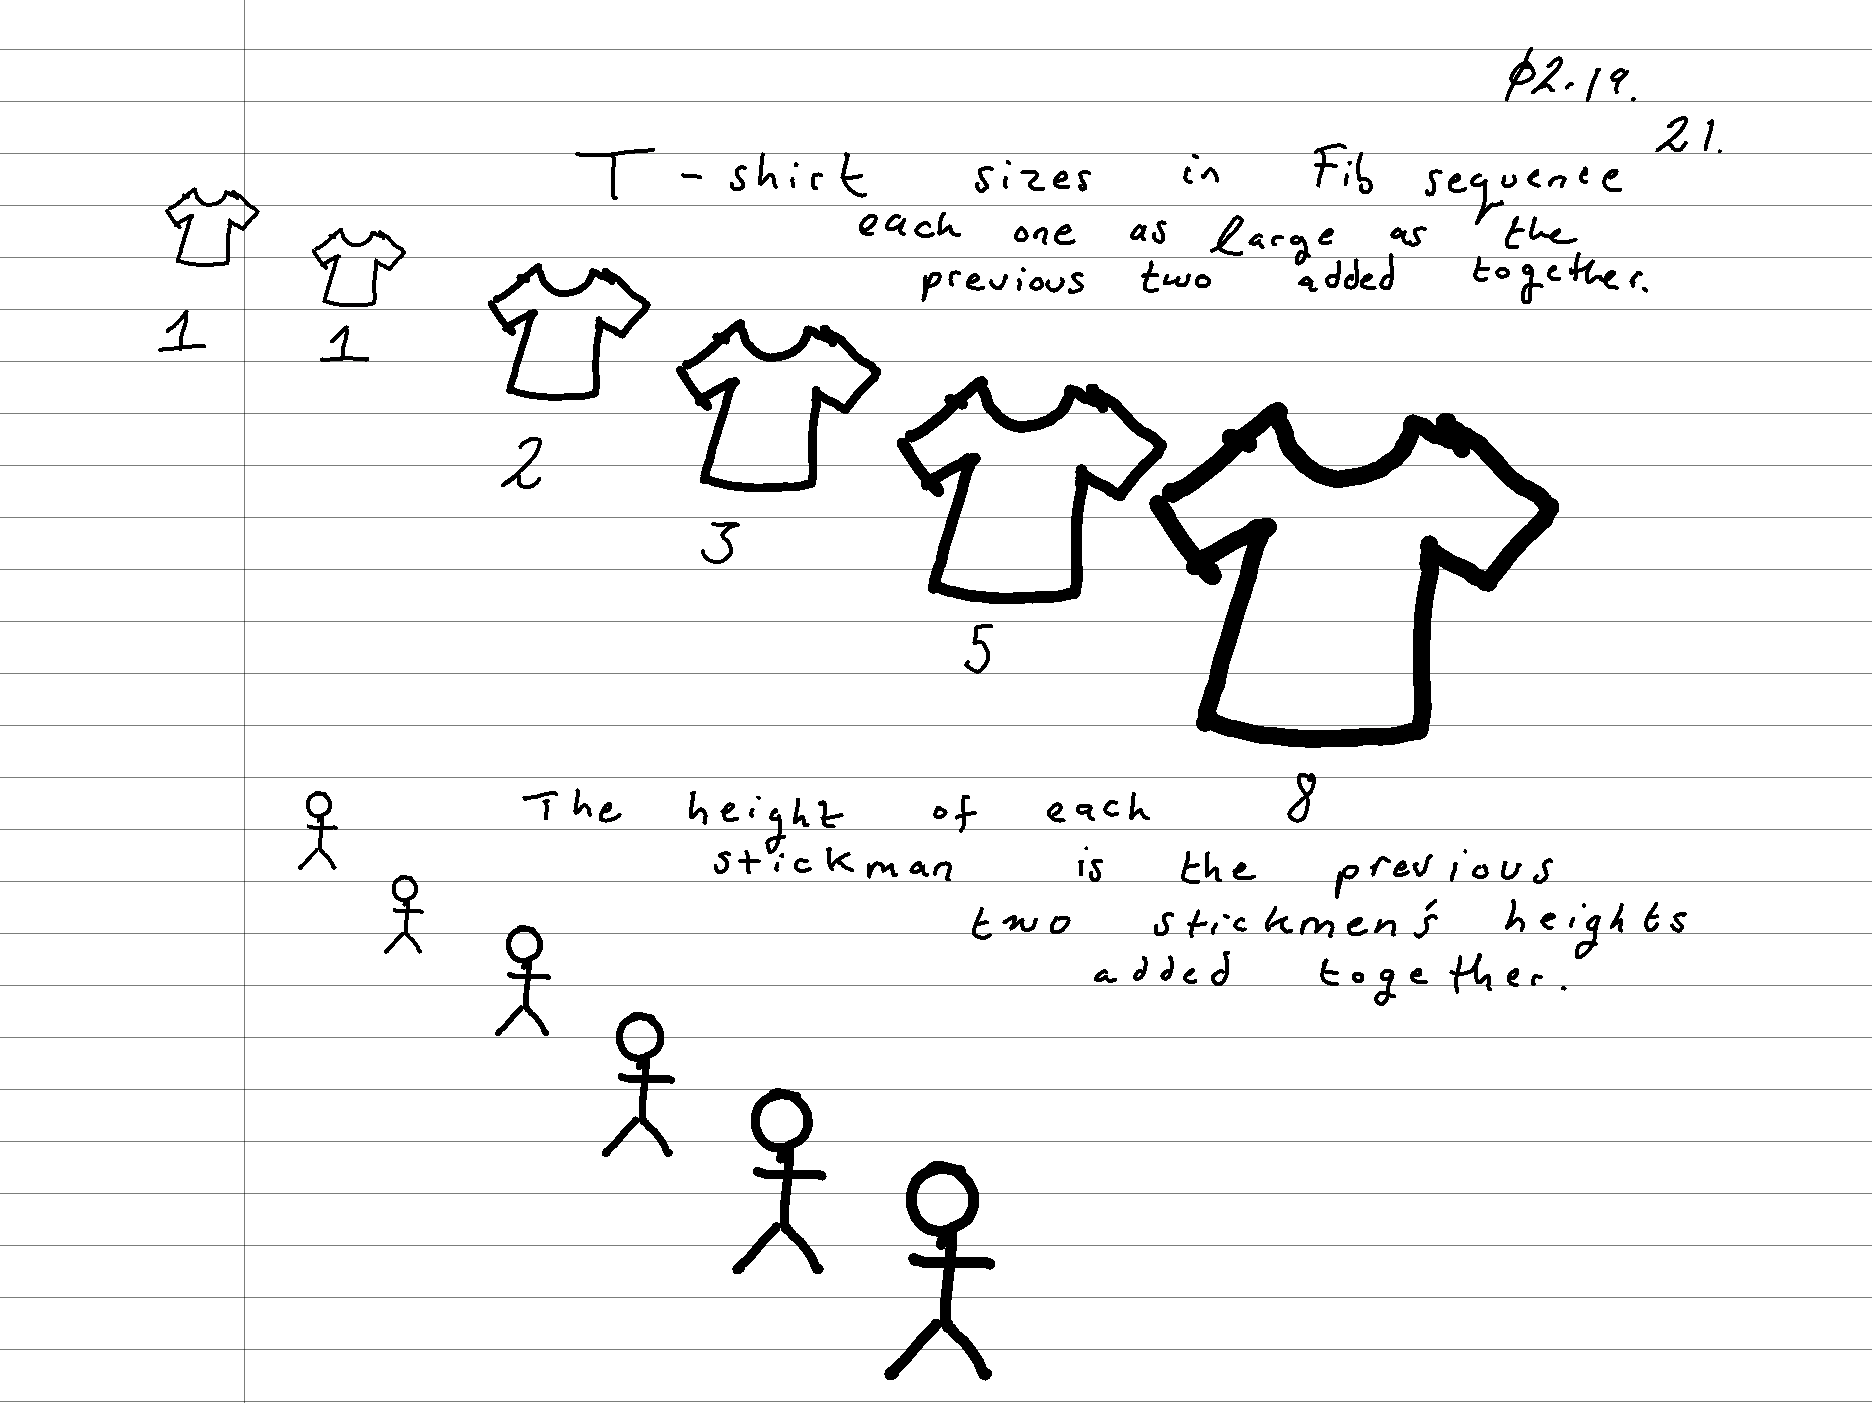 $2.19.
21.
T-shirt sizes in Fib sequence
each one as large as the
previous two added together.
1
1
2
3
5
8
The height of each
stickman is the previous
two stickmen's heights
added together.